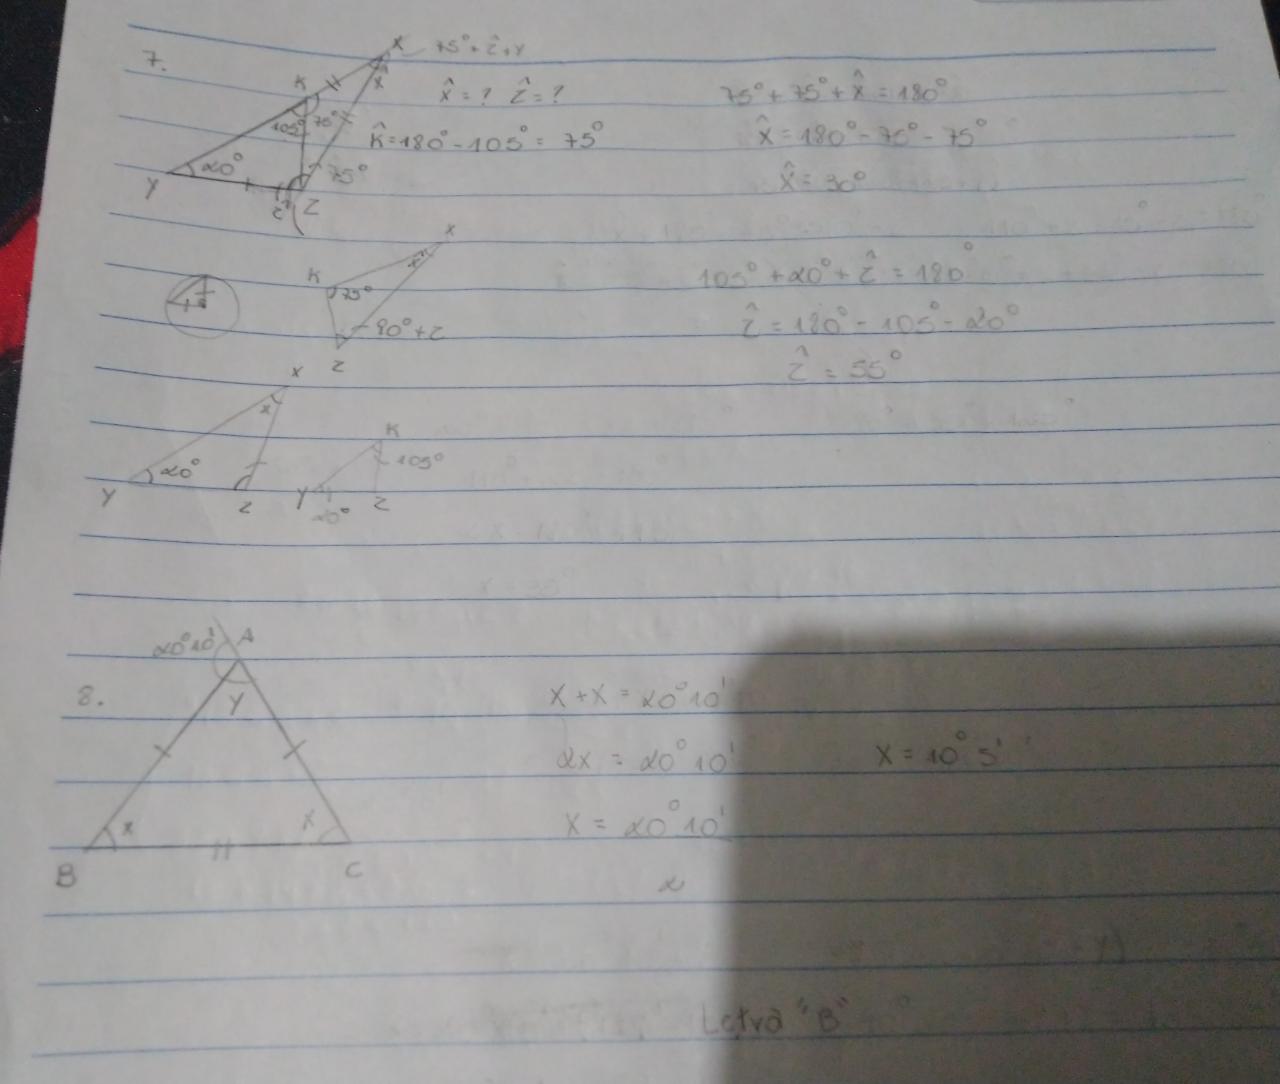 7.
X 75°+Ẑ+Y
K
X̂
105° 75°
20°
75°
Y
Ẑ Z
X̂ = ? Ẑ = ?
K̂ = 180° - 105° = 75°
75° + 75° + X̂ = 180°
X̂ = 180° - 75° - 75°
X̂ = 30°
X
K
X̂
75°
80°+Z
Z
105° + 20° + Ẑ = 180°
Ẑ = 180° - 105° - 20°
Ẑ = 55°
X
X
20°
Y Z
K
105°
Y Z
20°
20°10' A
8.
Y
X X
B C
X + X = 20°10'
2X = 20°10'
X = 20°10'
2
X = 10°5'
Letra "B"